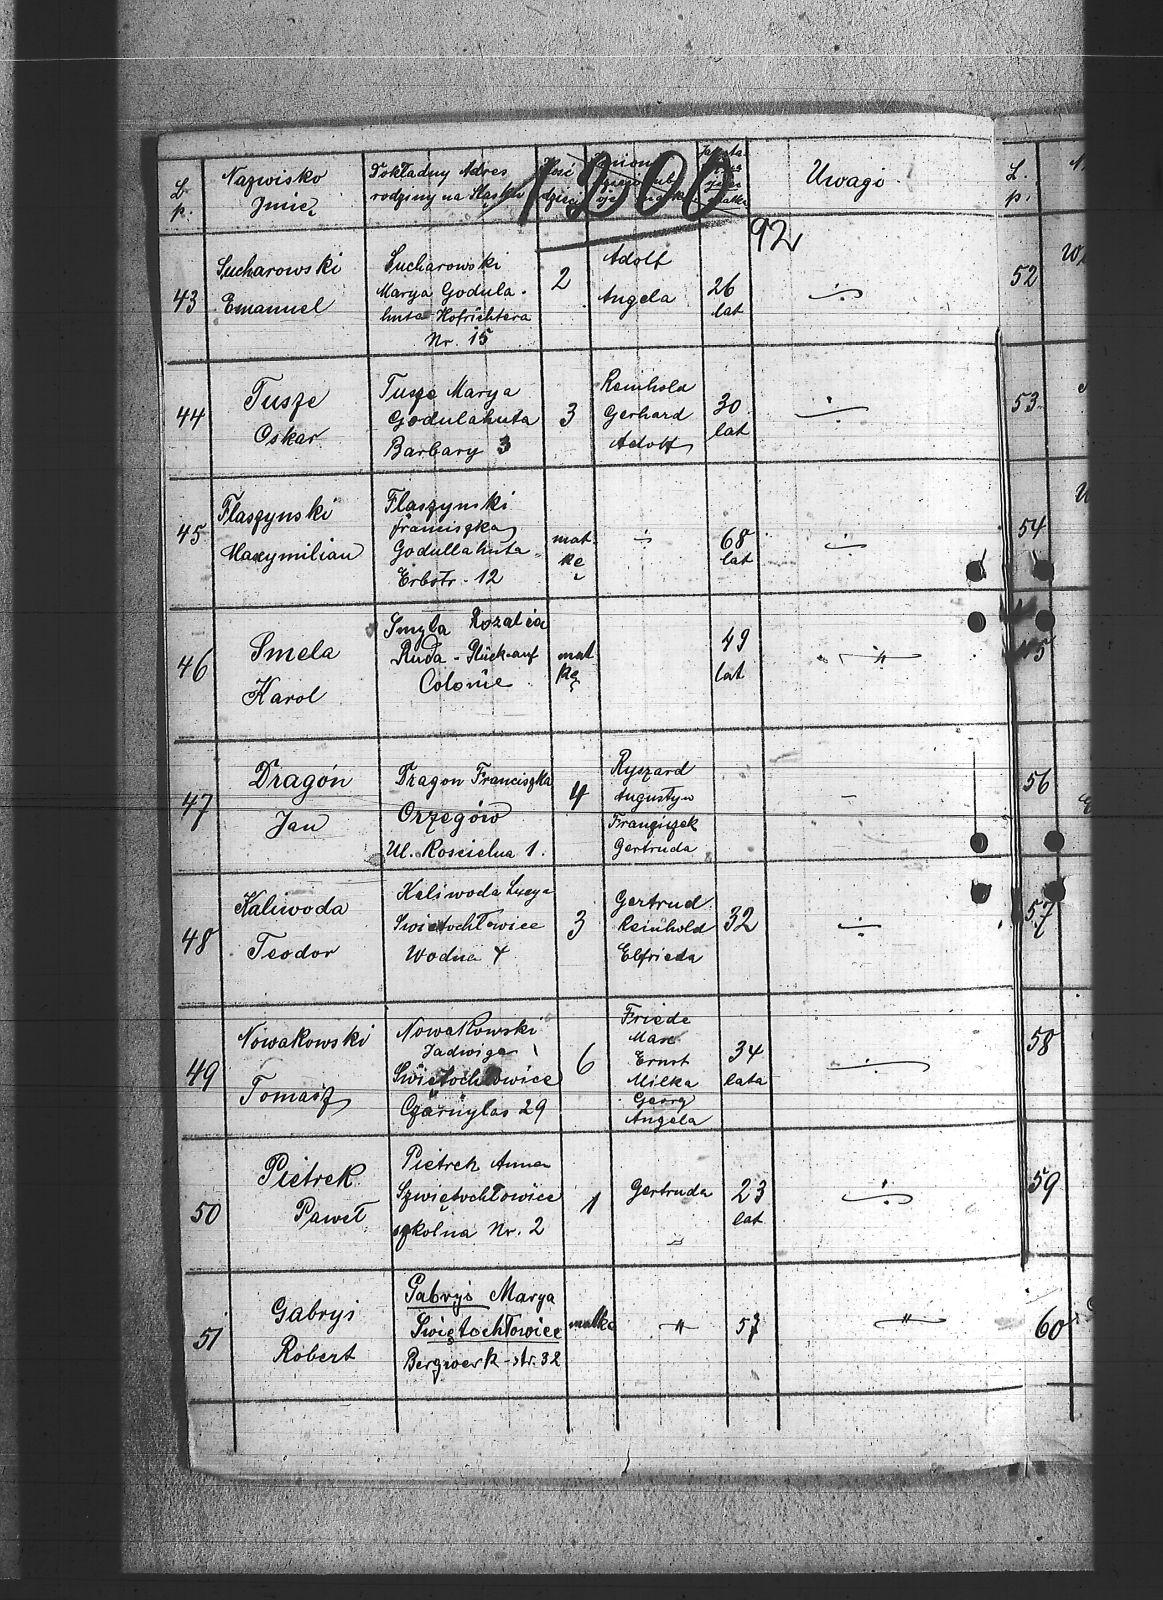 L. p.
Nazwisko
Imię
Dokładny Adres
rodziny na Śląsku
Ilość
dzieci
Uwagi
1300
92
L. p.
43
Sucharowski
Emanuel
Sucharowski
Marya Godula-
huta Hofrichtera
Nr. 15
2
Adolf
Angela
26
lat
44
Tusze
Oskar
Tusze Marya
Godulahuta
Barbary 3
3
Reinhold
Gerhard
Adolf
30
lat
45
Flaszynski
Maxymilian
Flaszynski
Franciszka
Godullahuta
Erbstr. 12
mat-
kę
68
lat
46
Smela
Karol
Smyla Rozalia
Ruda - Glück-auf
Colonie
mat
kę
49
lat
47
Dragón
Jan
Dragon Franciszka
Orzegów
Ul. Koscielna 1.
4
Ryszard
Augustyn
Franziszek
Gertruda
48
Kaliwoda
Teodor
Kaliwoda Lucya
Swietochłowice
Wodna 4
3
Gertrud
Reinhold
Elfrieda
32
49
Nowakowski
Tomasz
Nowakowski
Jadwiga
Swiętochłowice
Czarnylas 29
6
Friede
Max
Ernst
Milka
Georg
Angela
34
lata
50
Pietrek
Paweł
Pietrek Anna
Szwiętochłowice
szkolna Nr. 2
1
Gertruda
23
lat
51
Gabryś
Robert
Gabryś Marya
Swiętochłowice
Bergwerk-str. 32
matkę
57
52
53
54
55
56
57
58
59
60